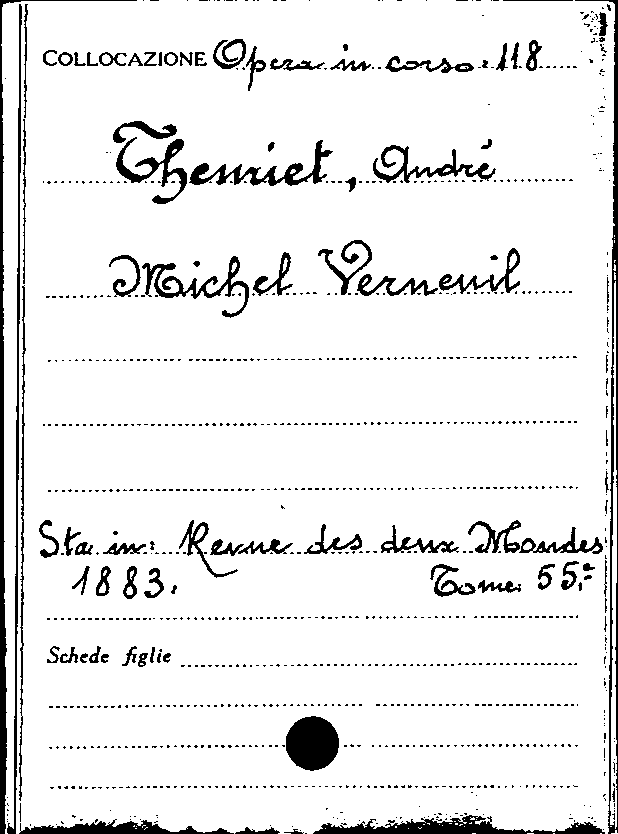 COLLOCAZIONE Opera in corso. 118
Theuriet, André
Michel Verneuil
Sta in: Revue des deux Mondes
1883. Tome 55º
Schede figlie